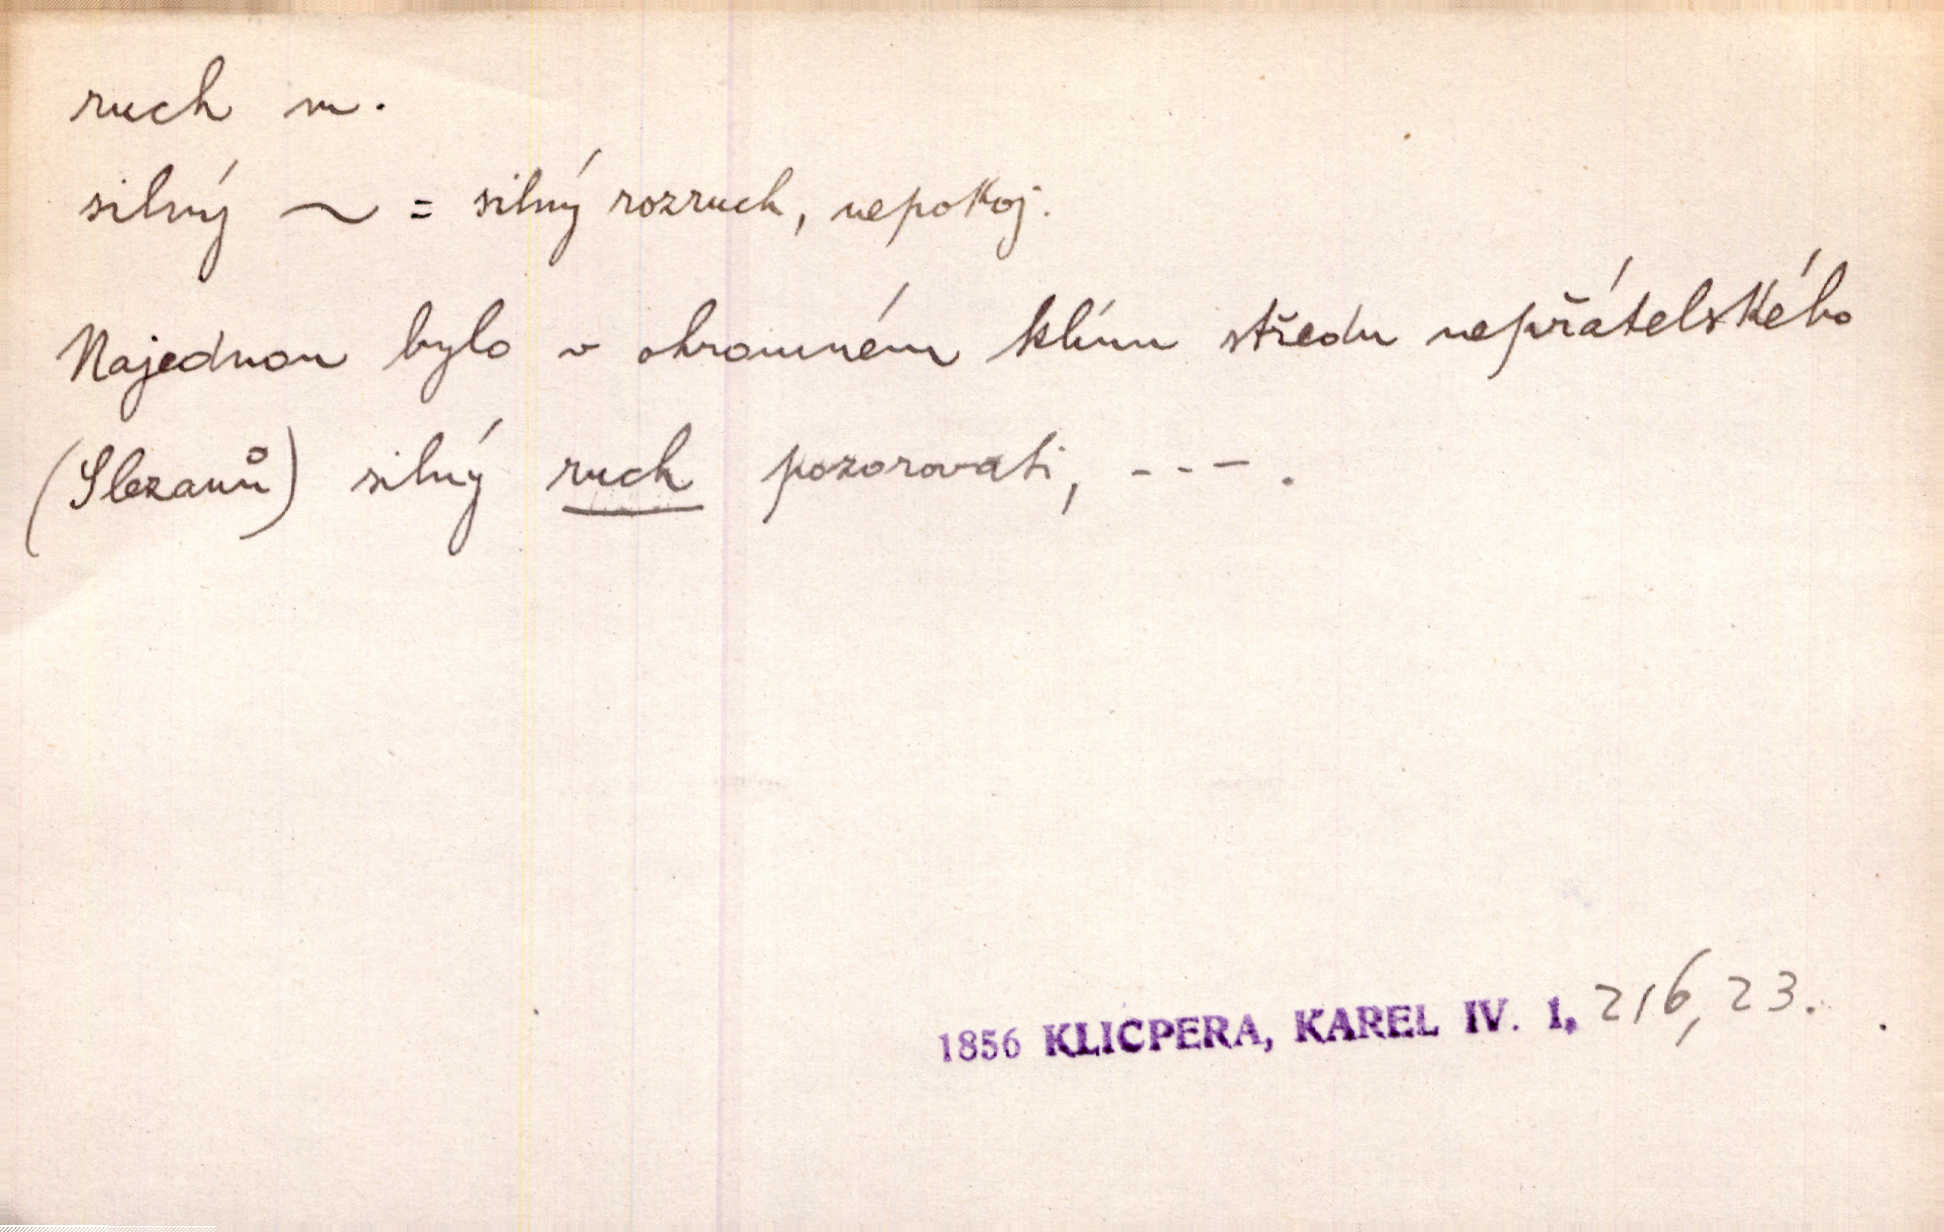 ruch m.
silný ~ = silný rozruch, nepokoj.
Najednou bylo v ohromném klínu středu nepřátelského
(Slezanů) silný ruch pozorovati, - - - .
1856 KLICPERA, KAREL IV. 1, 216, 23.